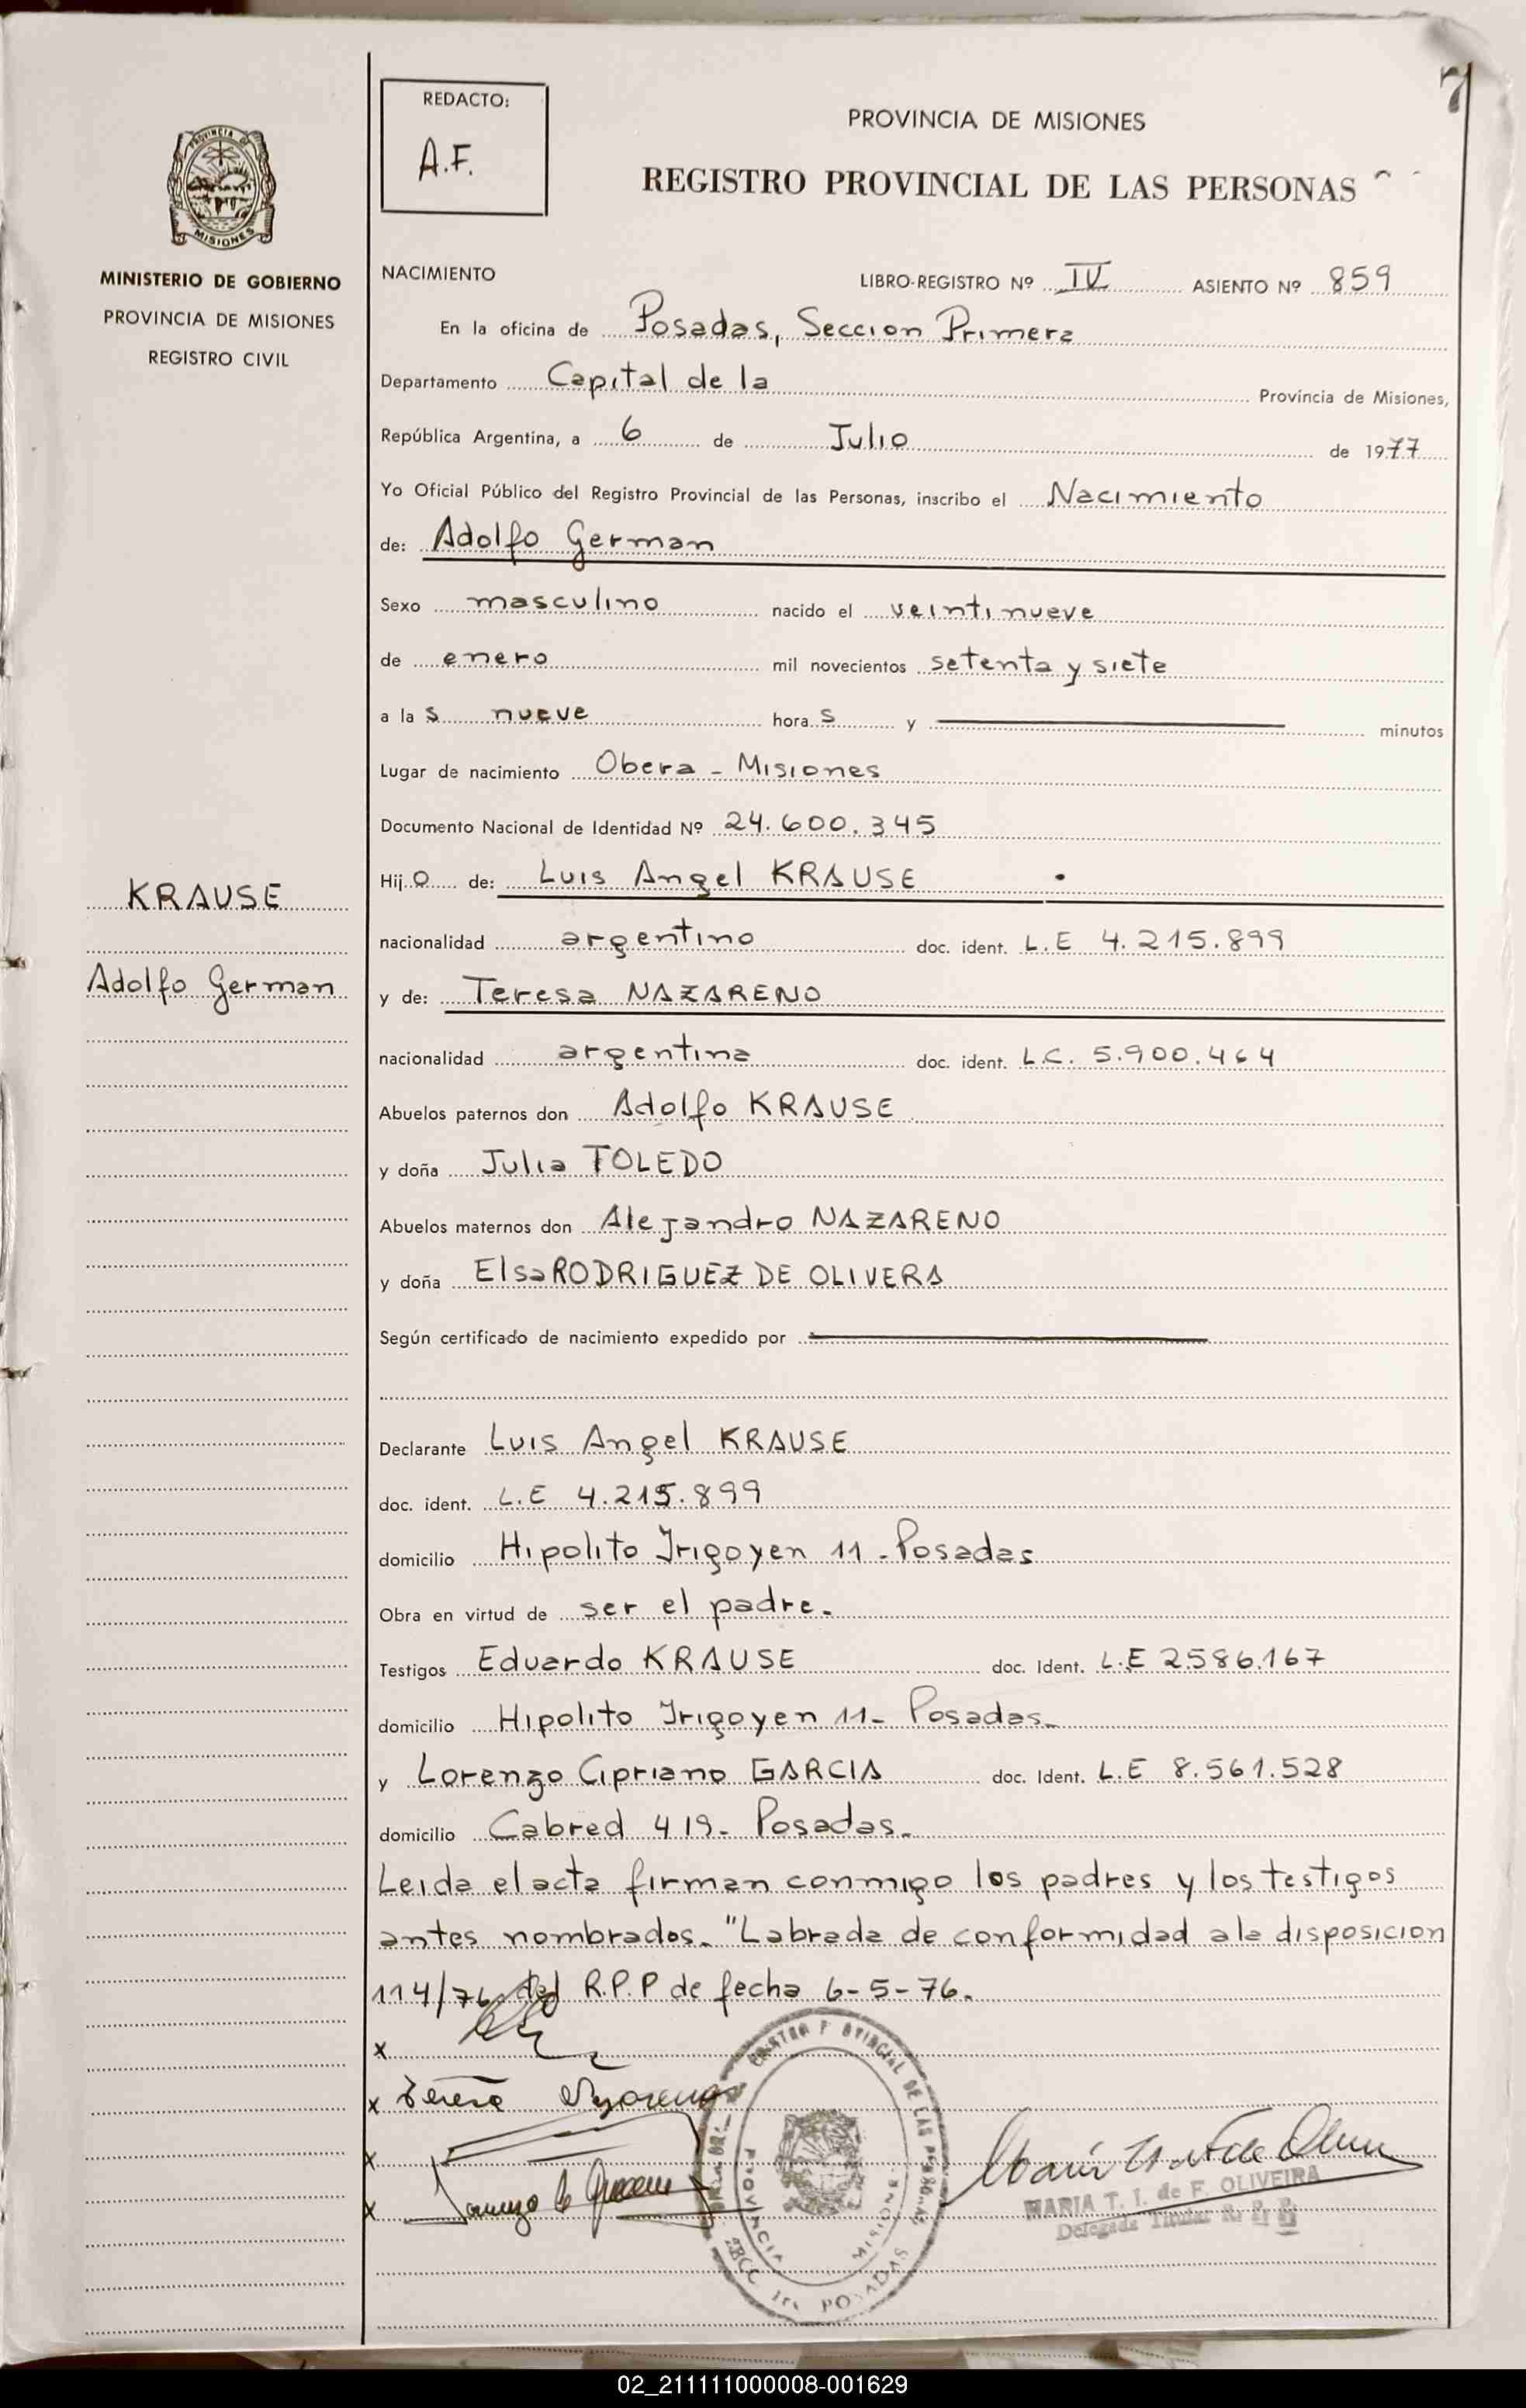 7
REDACTO:
A.F.
PROVINCIA DE MISIONES
REGISTRO PROVINCIAL DE LAS PERSONAS
MISIONES
MINISTERIO DE GOBIERNO
PROVINCIA DE MISIONES
REGISTRO CIVIL
NACIMIENTO LIBRO-REGISTRO Nº IV ASIENTO Nº 859
En la oficina de Posadas, Seccion Primera
Departamento Capital de la Provincia de Misiones,
República Argentina, a 6 de Julio de 1977
Yo Oficial Público del Registro Provincial de las Personas, inscribo el Nacimiento
de: Adolfo German
Sexo masculino nacido el veintinueve
de enero mil novecientos setenta y siete
a la s nueve hora s y minutos
Lugar de nacimiento Obera - Misiones
Documento Nacional de Identidad Nº 24.600.345
KRAUSE
Adolfo German
Hij o de: Luis Angel KRAUSE
nacionalidad argentino doc. ident. L.E 4.215.899
y de: Teresa NAZARENO
nacionalidad argentina doc. ident. L.C. 5.900.464
Abuelos paternos don Adolfo KRAUSE
y doña Julia TOLEDO
Abuelos maternos don Alejandro NAZARENO
y doña Elsa RODRIGUEZ DE OLIVERA
Según certificado de nacimiento expedido por
Declarante Luis Angel KRAUSE
doc. ident. L.E 4.215.899
domicilio Hipolito Irigoyen 11 - Posadas
Obra en virtud de ser el padre.
Testigos Eduardo KRAUSE doc. Ident. L.E 2.586.167
domicilio Hipolito Irigoyen 11- Posadas-
y Lorenzo Cipriano GARCIA doc. Ident. L.E 8.561.528
domicilio Cabred 419- Posadas-
Leida el acta firman conmigo los padres y los testigos
antes nombrados. "Labrada de conformidad a la disposicion
114/76 del R.P.P de fecha 6-5-76.
x
x Teresa Nazareno
x
x
PROVINCIA MISIONES
POSADAS
MARIA T. I. de F. OLIVEIRA
Delegada Titular
02_211111000008-001629